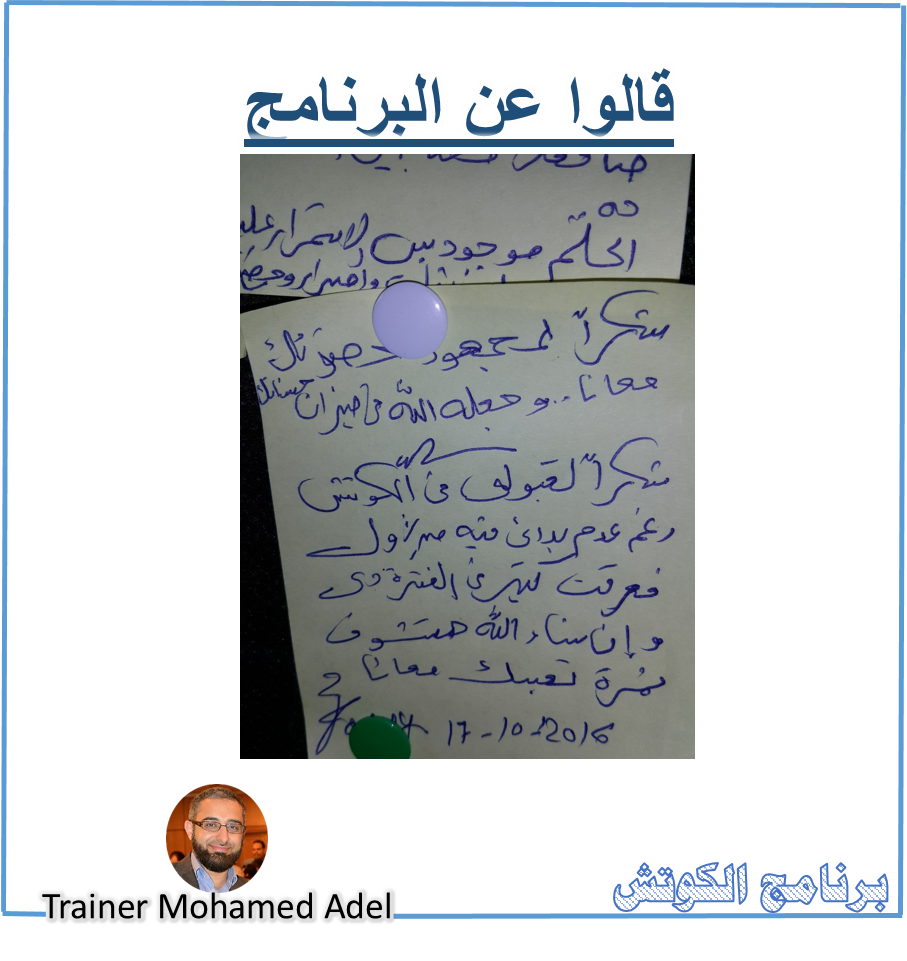 قالوا عن البرنامج
ده
الحلم موجود بس الاستمرار عليه
شكراً لمجهود حضرتك
معانا .. وجعله الله في ميزان حسناتك
شكراً لقبولى في الكوتش
رغم عدم بدائى فيه من الأول
فعرفت كتير في الفترة دى
وإن شاء الله هتشوف
ثمرة تعبك معانا
17-10-2016
Trainer Mohamed Adel
برنامج الكوتش